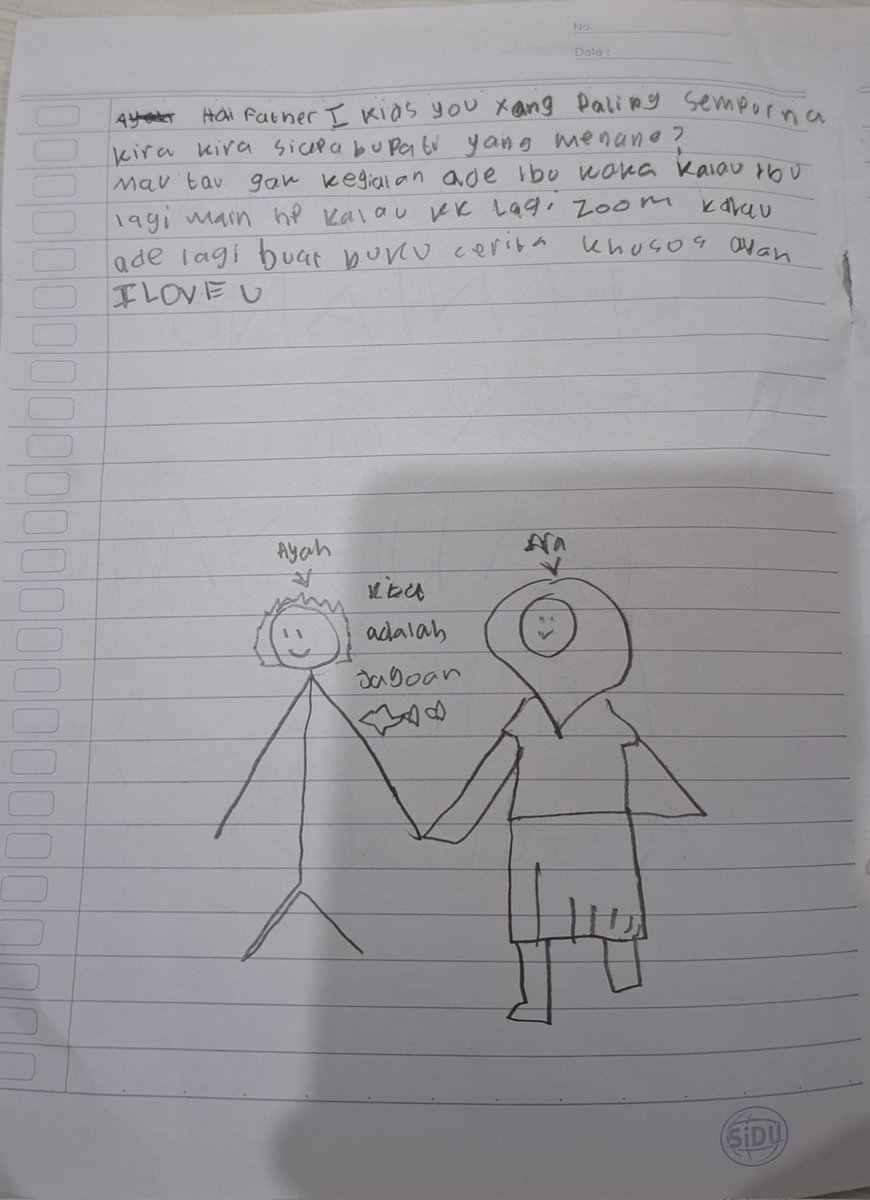 No:
Date :
Hai Father I kids you yang Paling Semporna
kira kira siapa bupati yang menang?
mau tau gak kegiatan ade ibu kaka kalau ibu
lagi main hp kalau kk lagi zoom kalau
ade lagi buat buku cerita khusos ayah
I LOVE U
Ayah
kita
adalah
Jagoan
SiDU